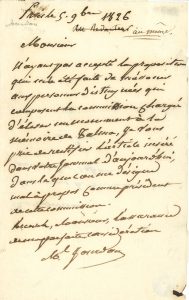 Paris le 5. 9bre 1826
au même
Monsieur
N'ayant pas accepté la proposition
qui m'a été faite de présider
aux personnes distinguées qui
composent la commission chargée
d'élever un monument à la
mémoire de Talma, je vous
prie de rectifier l'article inséré
dans votre journal d'aujourd'hui,
dans lequel on me désigne
mal à propos comme président
de cette commission.
Recevez, Monsieur, l'assurance
de ma parfaite considération
Mal Jourdan